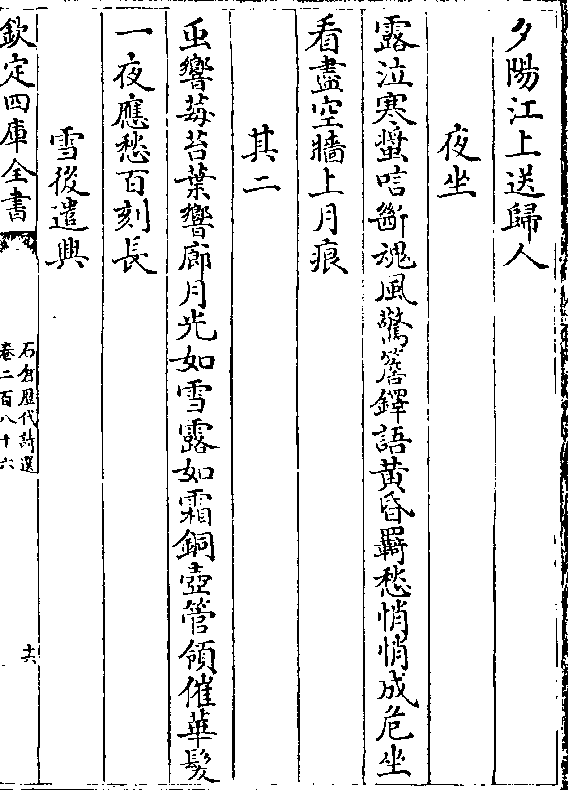 夕陽江上送歸人
夜坐
露泣寒螿咭斷魂風驚簷鐸語黄昏羇愁悄悄成危坐
看盡空牆上月痕
其二
虫響莓苔葉響廊月光如雪露如霜銅壺管領催華髮
一夜應愁百刻長
雪後遣興
欽定四庫全書
石倉歴代詩選
卷二百八十六
十六